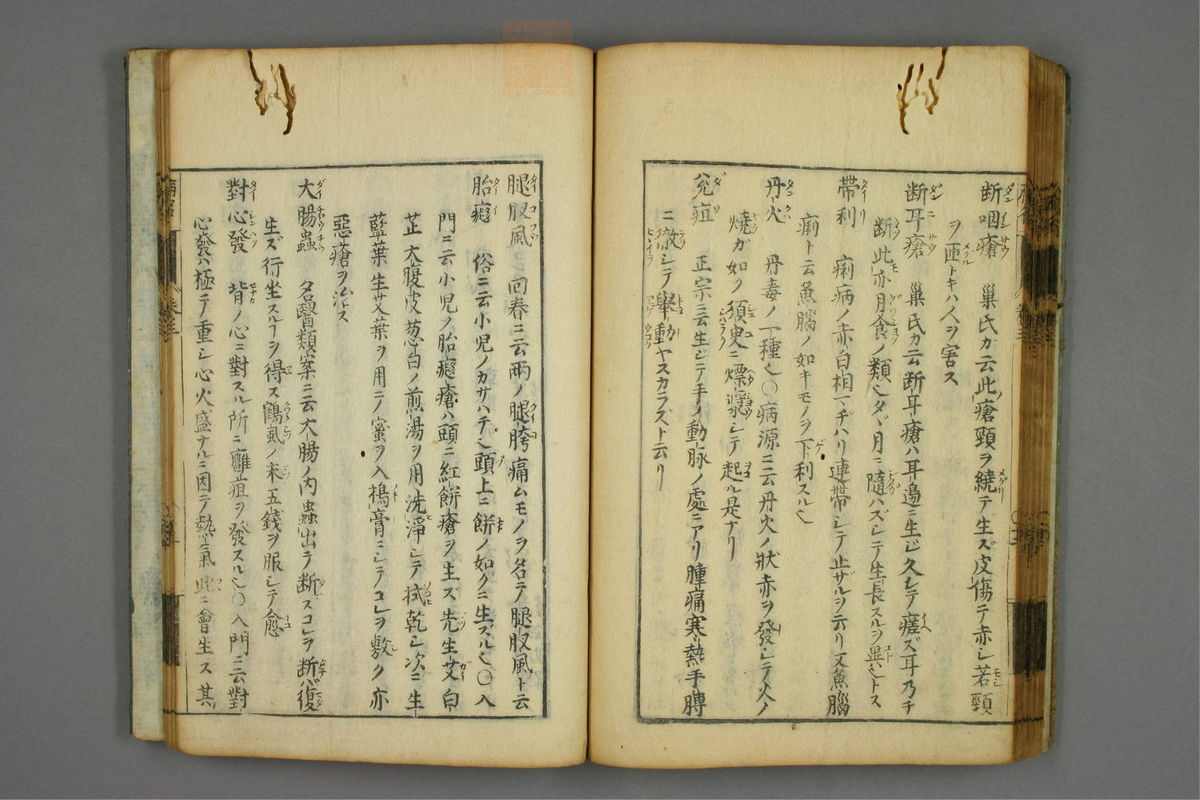 断咽瘡 巣氏ガ云此瘡頸ヲ繞テ生ズ皮傷テ赤シ若頸
ヲ匝トキハ人ヲ害ス
断耳瘡 巣氏ガ云断耳瘡ハ耳邉ニ生ジ久シテ瘥ズ耳乃チ
断此亦月食ノ類也タダ月ニ隨ハズシテ生長スルヲ異也トス
帯利 痢病ノ赤白相マヂハリ連帯シテ止ザルヲ云リ又魚腦
痢ト云魚腦ノ如キモノヲ下利スル也
丹火 丹毒ノ一種也〇病源ニ云丹火ノ狀赤ヲ發シテ火ノ
燒ガ如ク須臾ニ熛漿シテ起ル是ナリ
兊疽 正宗ニ云生ジテ手ノ動脉ノ處ニアリ腫痛寒熱手膊
ニ徹シテ擧動ヤスカラズト云リ
腿股風 回春ニ云兩ノ腿胯痛ムモノヲ名テ腿股風ト云
胎癦 俗ニ云小児ノカサハチ也頭上ニ餅ノ如クニ生ズル也〇入
門ニ云小児ノ胎癦瘡ハ頭ニ紅餅瘡ヲ生ズ先生艾白
芷大腹皮葱白ノ煎湯ヲ用洗淨シテ拭乾シ次ニ生
藍葉生艾葉ヲ用テ蜜ヲ入擣膏ニシテコレヲ敷ク亦
惡瘡ヲ治ス
大腸蟲 名醫類案ニ云大腸ノ内蟲出テ断スコレヲ断バ復
生ズ行坐スルヿヲ得ス鶴虱ノ末五錢ヲ服シテ愈
對心發 背ノ心ニ對スル所ニ癰疽ヲ發スル也〇入門ニ云對
心發ハ極テ重シ心火盛ナルニ因テ熱氣此ニ會生ス其